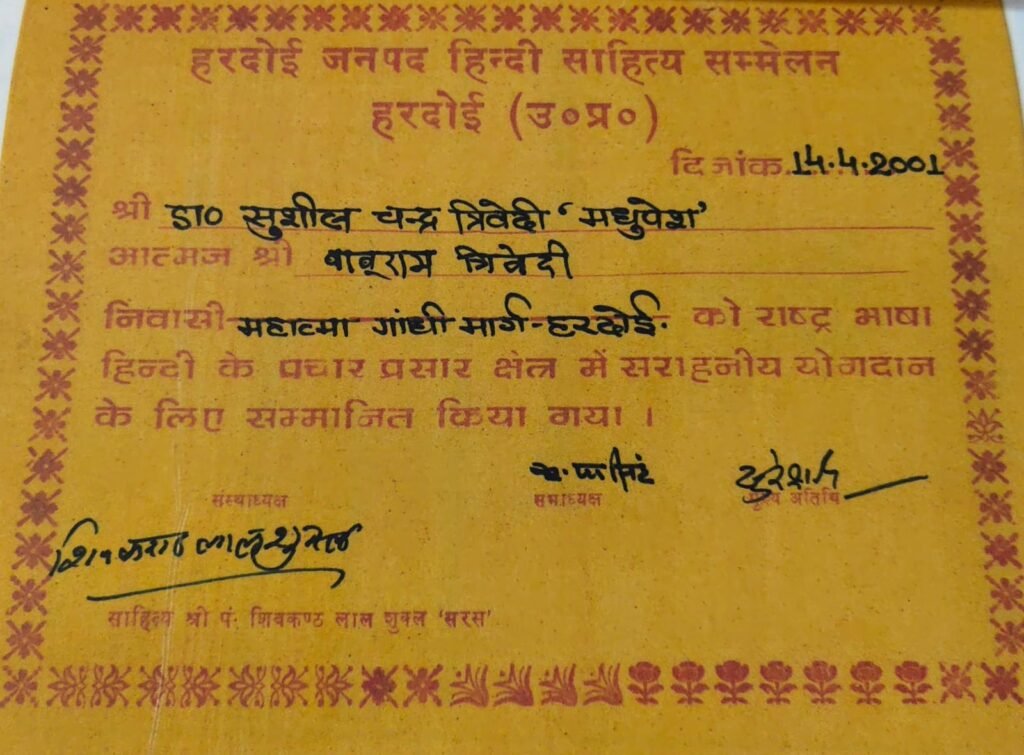 हरदोई जनपद हिन्दी साहित्य सम्मेलन
हरदोई (उ०प्र०)
दिनांक 14.4.2001
श्री डा० सुशील चन्द्र त्रिवेदी 'मधुपेश'
आत्मज श्री बाबूराम त्रिवेदी
निवासी महात्मा गांधी मार्ग-हरदोई. को राष्ट्र भाषा
हिन्दी के प्रचार प्रसार क्षेत्र में सराहनीय योगदान
के लिए सम्मानित किया गया ।
संस्थाध्यक्ष सभाध्यक्ष मुख्य अतिथि
शिवकण्ठ लाल शुक्ल
साहित्य श्री पं. शिवकण्ठ लाल शुक्ल 'सरस'